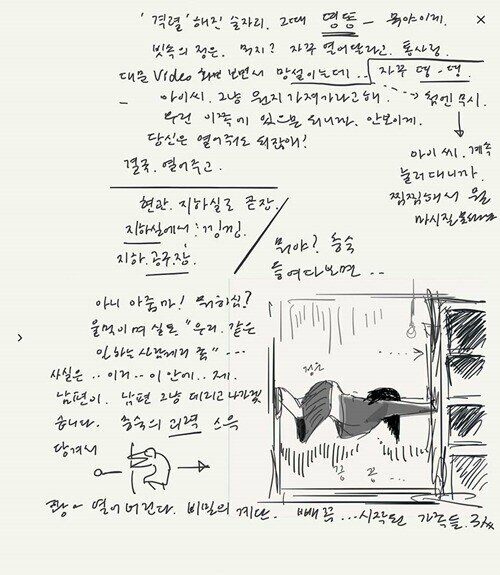 '격렬'해진 술자리. 그때 띵똥 - 뭐야 이게. ×
빗속의 정은. 뭐지? 자꾸 열어달라고. 통사정.
대문 Video 화면 보면서 망설이는데.. 자꾸 띵-띵.
- 아이씨. 그냥 뭔지 가져가라고해. → 첨엔 무시.
우린 이쪽에 있으면 되니까. 안보이게.
당신은 열어줘도 되잖애!
결국. 열어주고.
아이 씨. 계속
눌러대니까.
찜찜해서 뭘
마시질
현관. 지하실로 곧장.
지하실에서 : 낑낑.
지하.공구.장.
뭐야? 충숙
들여다보면 ..
아니 아줌마! 뭐하심?
울먹이며 실토 "우리. 같은
일하는 사람끼리 쫌" ...
사실은 .. 이거 .. 이 안에.. 제.
남편이. 남편 그냥 데리고 나가겠
습니다. 충숙의 괴력 스윽
당겨서
정은
끙 끙 ...
쾅~ 열어버린다. 비밀의 계단. 빼꼭 ... 시작된 가족들.